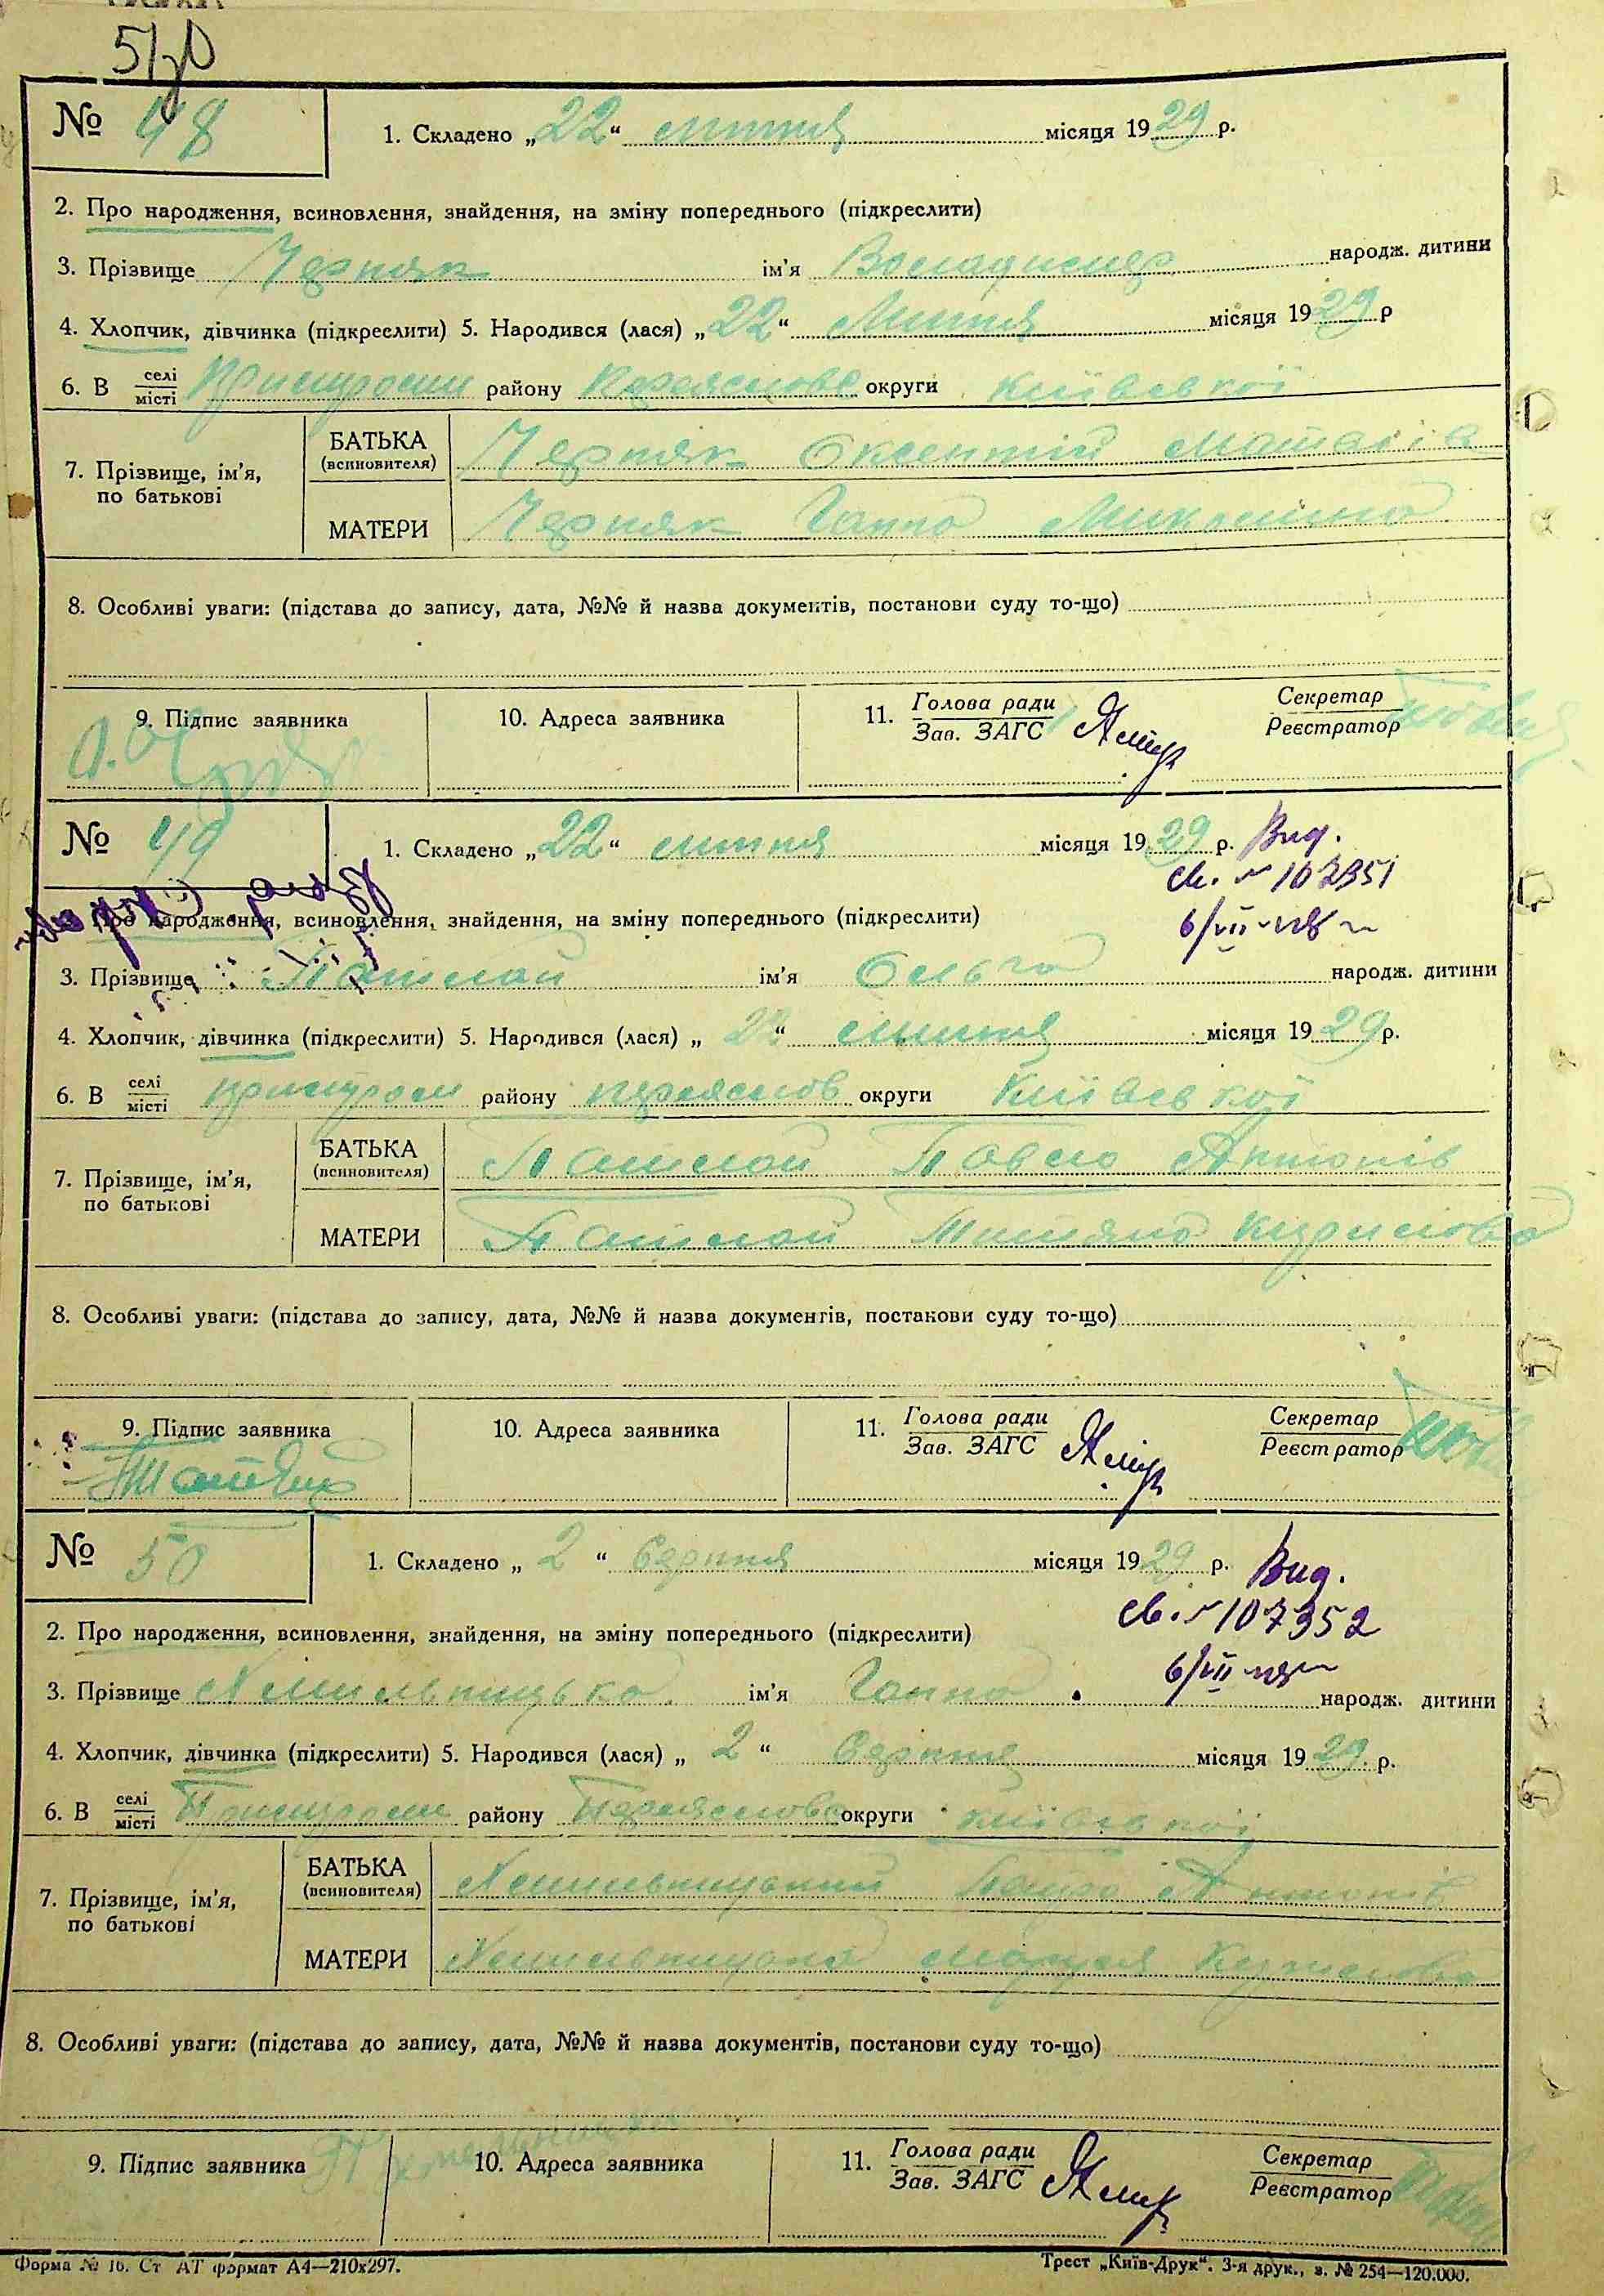 № 48
1. Складено „22“ липня місяця 1929 р.
2. Про народження, всиновлення, знайдення, на зміну попереднього (підкреслити)
3. Прізвище Черняк ім'я Володимер народж. дитини
4. Хлопчик, дівчинка (підкреслити) 5. Народився (лася) „22“ Липня місяця 1929 р
6. В селі місті району округи Київської
7. Прізвище, ім'я, по батькові
БАТЬКА (всиновителя) Черняк Оксентій
МАТЕРИ Черняк Ганна
8. Особливі уваги: (підстава до запису, дата, №№ й назва документів, постанови суду то-що)
9. Підпис заявника
10. Адреса заявника
11. Голова ради Зав. ЗАГС
Секретар Реєстратор
№ 49
1. Складено „22“ липня місяця 1929 р. Вид.
св. №
Про народження, всиновлення, знайдення, на зміну попереднього (підкреслити)
3. Прізвище ім'я Ольга народж. дитини
4. Хлопчик, дівчинка (підкреслити) 5. Народився (лася) „22“ липня місяця 1929 р.
6. В селі місті району округи Київської
7. Прізвище, ім'я, по батькові
БАТЬКА (всиновителя) Павло Антонів
МАТЕРИ Тетяна Кирилова
8. Особливі уваги: (підстава до запису, дата, №№ й назва документів, постанови суду то-що)
9. Підпис заявника
10. Адреса заявника
11. Голова ради Зав. ЗАГС
Секретар Реєстратор
№ 50
1. Складено „2“ Серпня місяця 1929 р. Вид.
св. № 107352
2. Про народження, всиновлення, знайдення, на зміну попереднього (підкреслити)
3. Прізвище ім'я Ганна народж. дитини
4. Хлопчик, дівчинка (підкреслити) 5. Народився (лася) „2“ Серпня місяця 1929 р.
6. В селі місті району округи Київської
7. Прізвище, ім'я, по батькові
БАТЬКА (всиновителя) Антонів
МАТЕРИ
8. Особливі уваги: (підстава до запису, дата, №№ й назва документів, постанови суду то-що)
9. Підпис заявника
10. Адреса заявника
11. Голова ради Зав. ЗАГС
Секретар Реєстратор
Форма № 16. Ст АТ формат А4—210x297.
Трест „Київ-Друк“. 3-я друк., з. № 254—120.000.